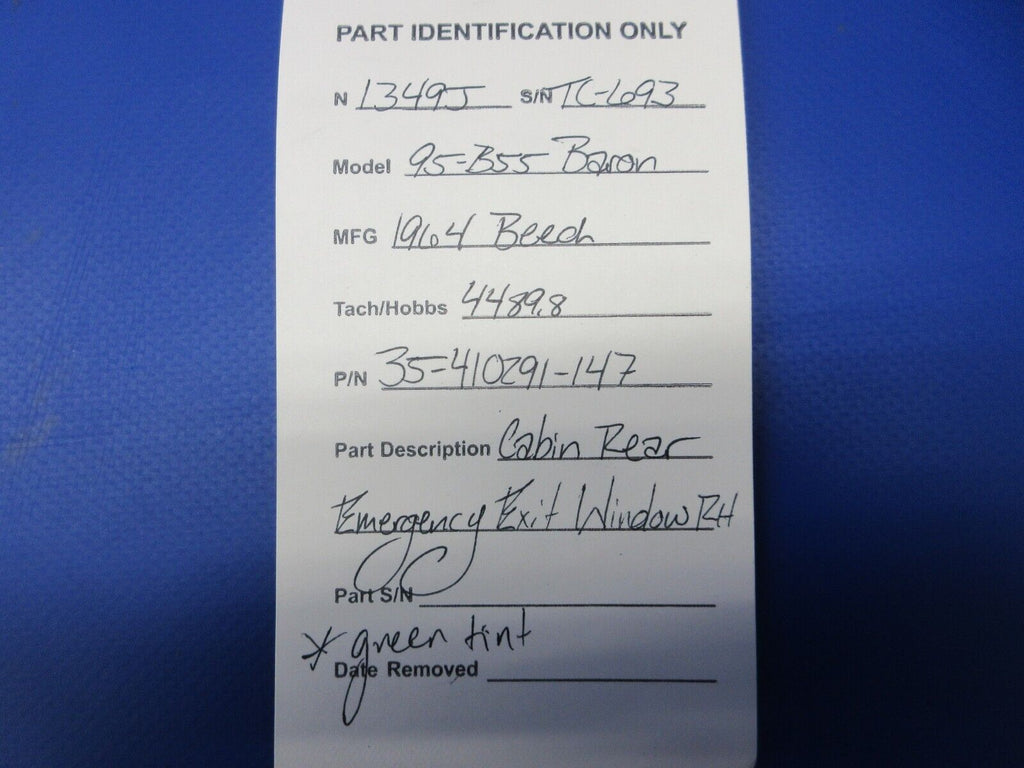 PART IDENTIFICATION ONLY
N 1349J S/N TC-693
Model 95-B55 Baron
MFG 1964 Beech
Tach/Hobbs 4489.8
P/N 35-410291-147
Part Description Cabin Rear
Emergency Exit Window RH
Part S/N
* green tint
Date Removed